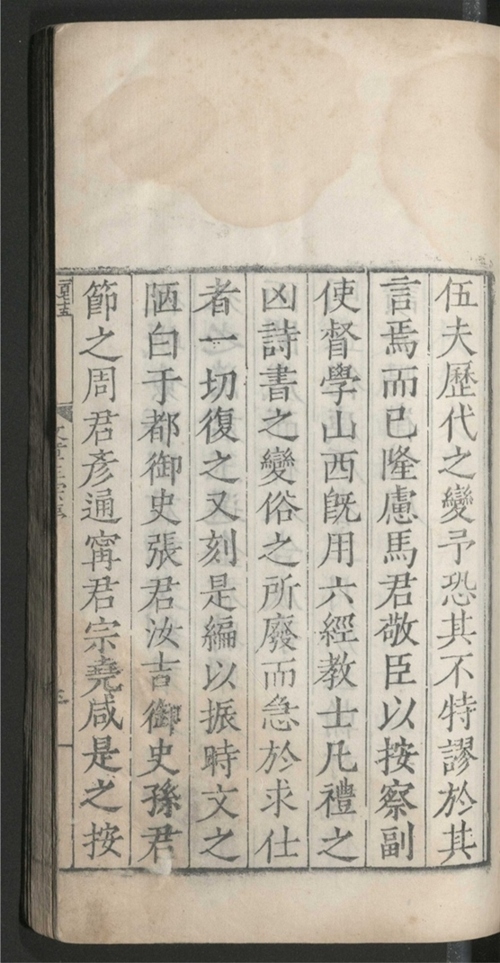 伍夫歷代之變予恐其不特謬於其
言焉而已隆慮馬君敬臣以按察副
使督學山西旣用六經教士凡禮之
凶詩書之變俗之所廢而急於求仕
者一切復之又刻是編以振時文之
陋白于都御史張君汝吉御史孫君
節之周君彥通甯君宗堯咸是之按